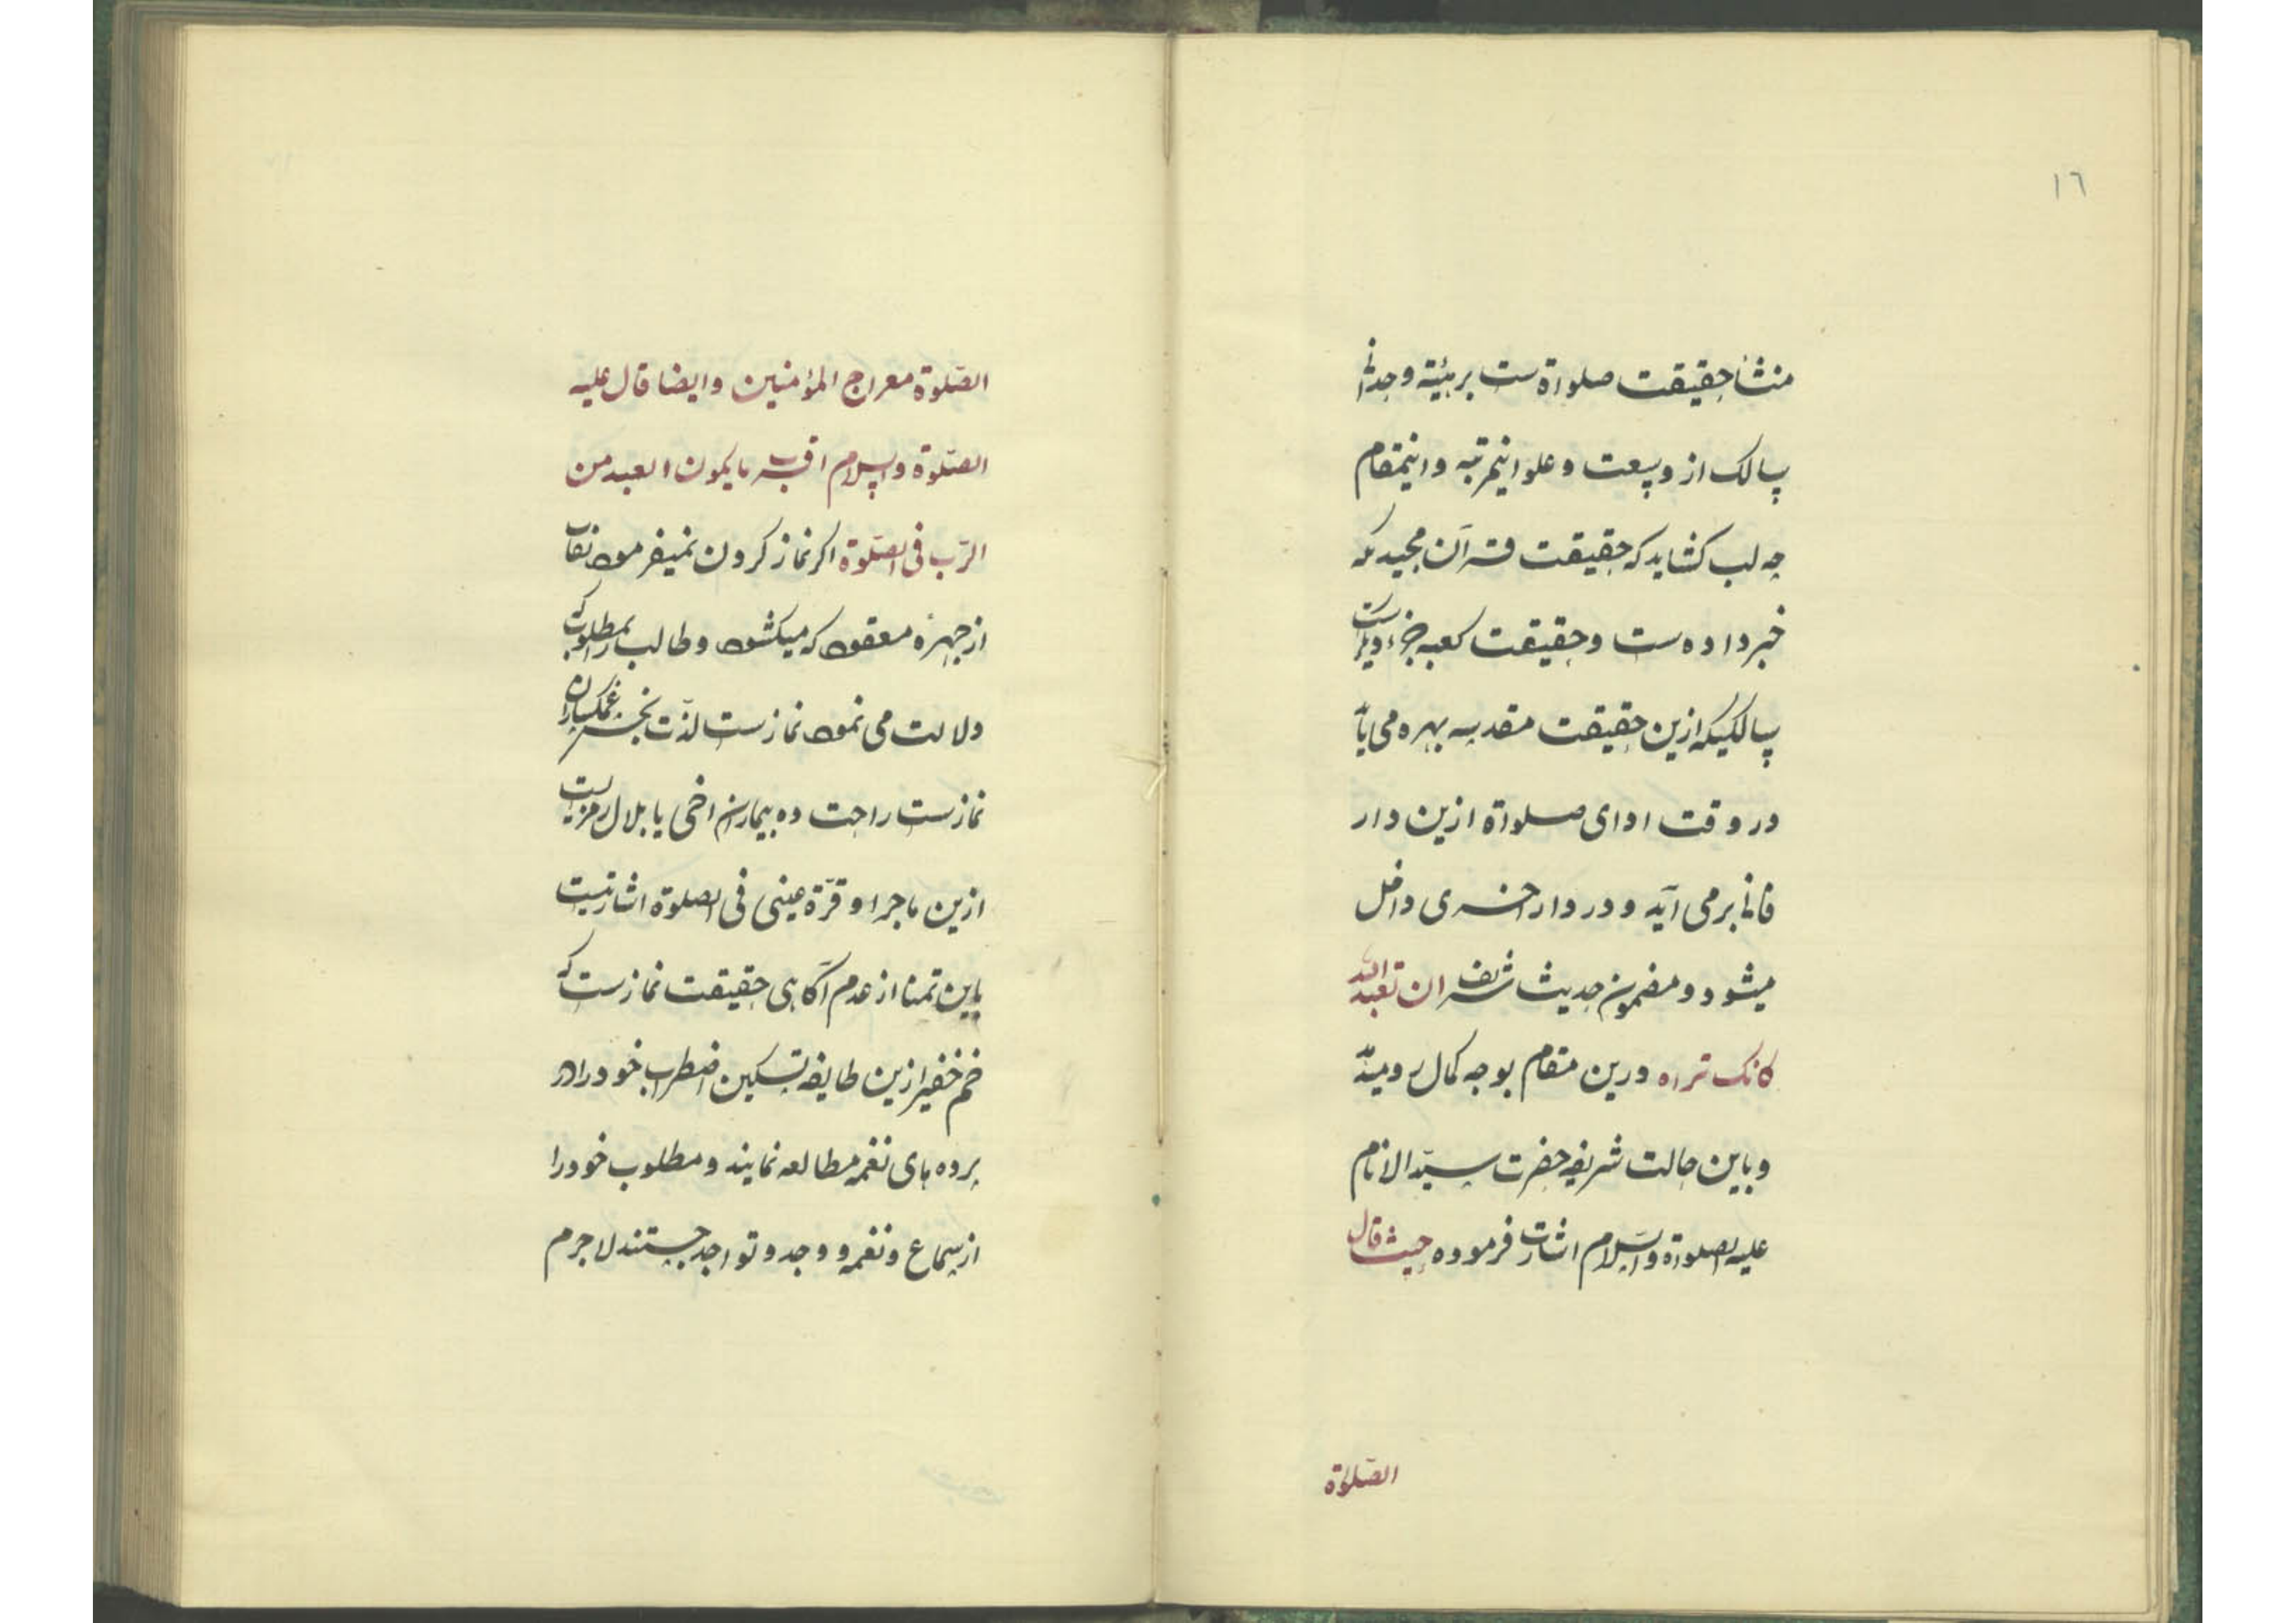 ١٦
منشأ حقیقت صلواة ست بر هیئة وجدانی
سالک از وسعت و علو اینمرتبه و اینمقام
چه لب کشاید که حقیقت قرآن مجید که
خبر داده ست و حقیقت کعبه جزء ویراست
سالکیکه ازین حقیقت مقدسه بهره می یابد
در وقت ادای صلواة ازین دار
فانی بر می آید و در دار اخری داخل
میشود و مضمون حدیث شریف ان تعبد الله
کانک تراه درین مقام بوجه کمال رو میدهد
و باین حالت شریفه حضرت سید الانام
علیه الصلواة والسلام اشارت فرموده حیث قال
الصّلوة
الصّلوة معراج المؤمنین و ایضا قال علیه
الصّلوة والسلام اقرب ما یکون العبد من
الرّب فی الصّلوة اکر نماز کردن نمیفرمود نقاب
از چهرهٔ مقصود که میکشود و طالب را بمطلوب که
دلالت می نمود نماز ست لذّت بخش غمکساران
نماز ست راحت ده بیماران ارحنی یا بلال رمزیست
ازین ماجرا و قرّة عینی فی الصلوة اشارتیست
باین تمنا از عدم آکاهی حقیقت نماز ست که
جم غفیر ازین طایفه تسکین اضطراب خود را در
پرده های نغمه مطالعه نمایند و مطلوب خود را
از سماع و نغمه و وجد و تواجد جستند لاجرم